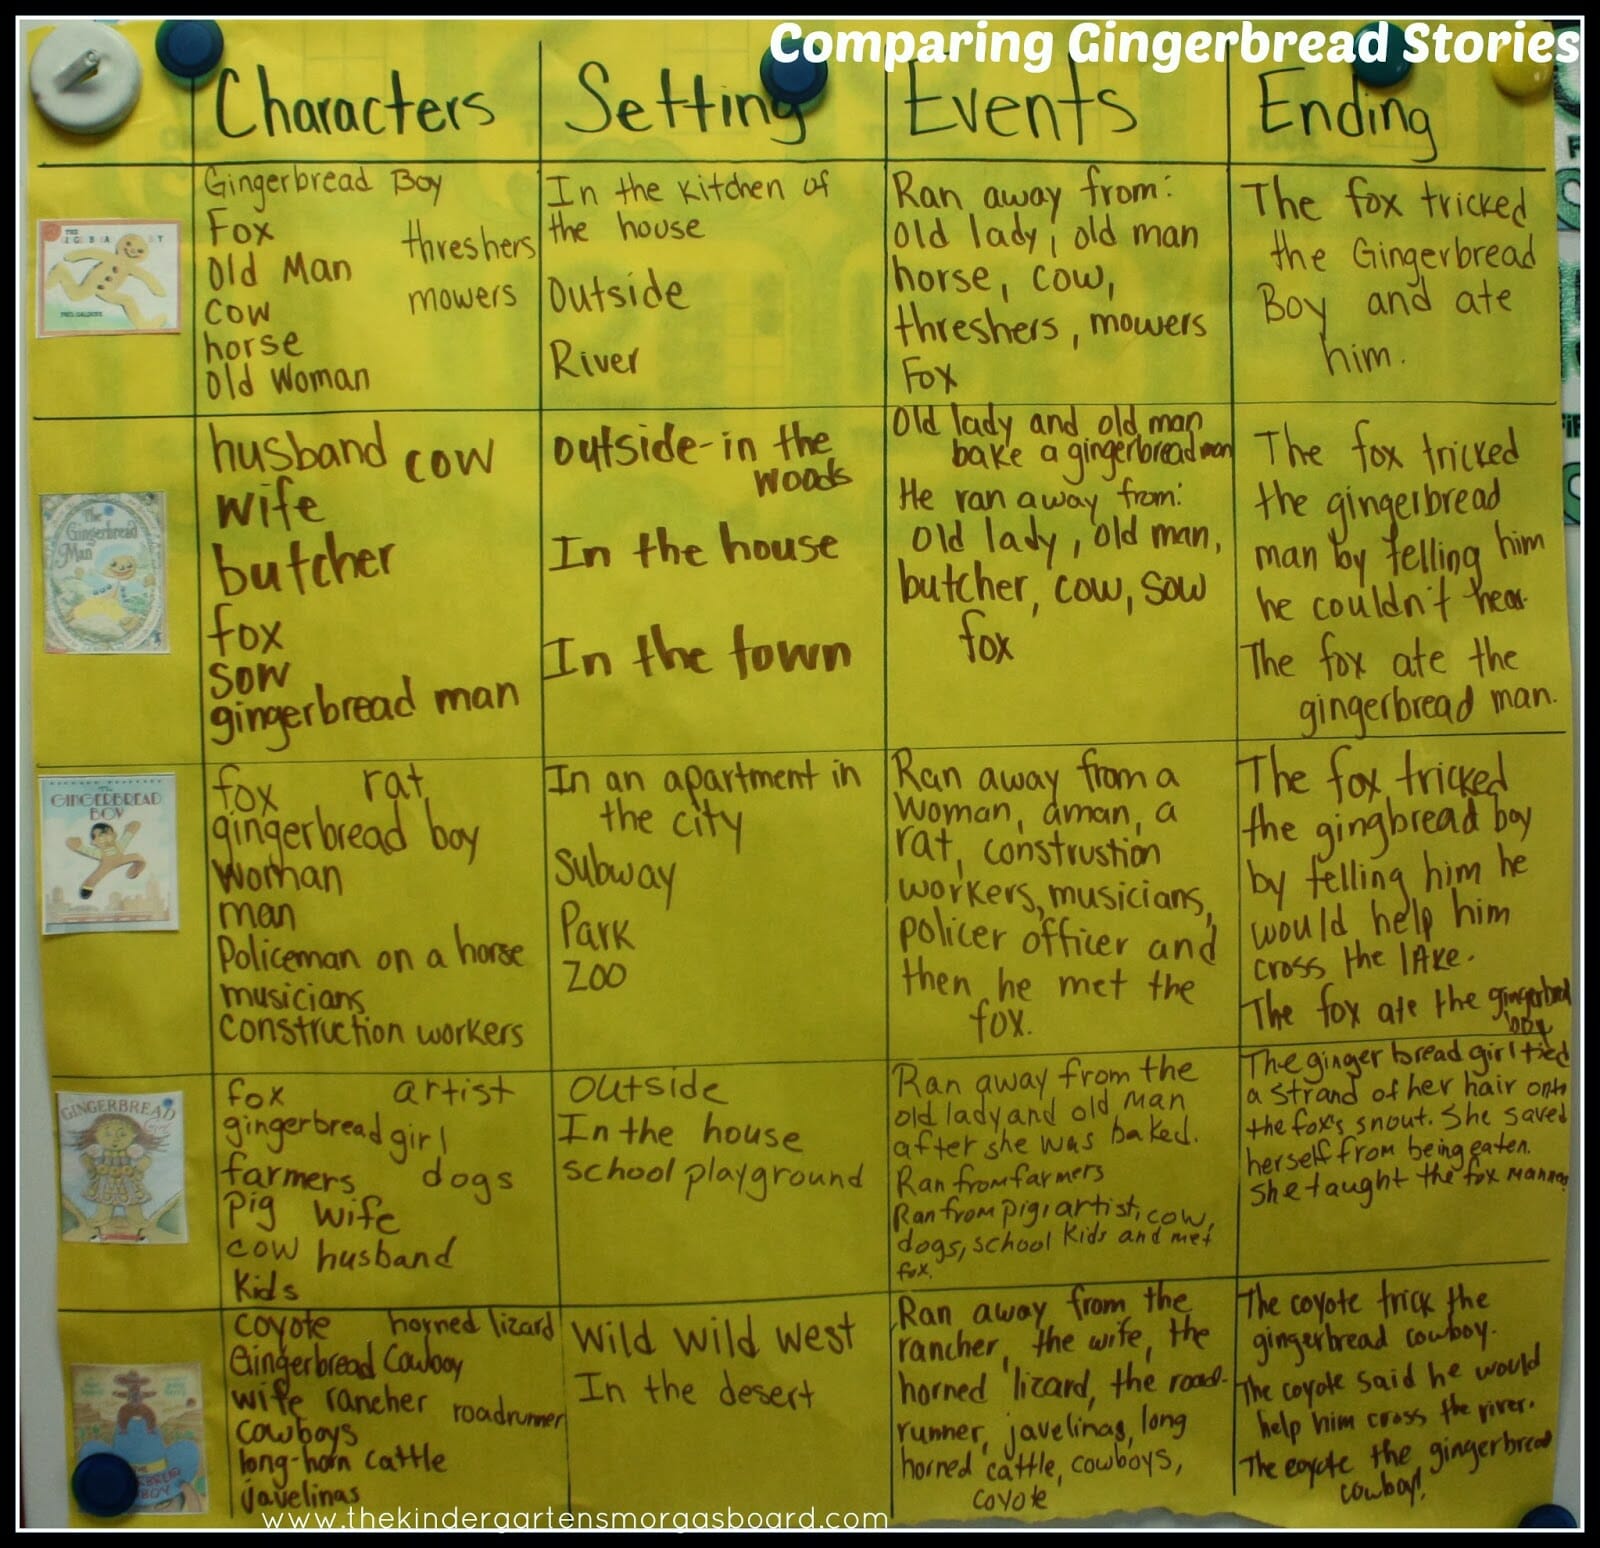 Comparing Gingerbread Stories
Characters
Setting
Events
Ending
THE
PAUL GALDONE
Gingerbread Boy
Fox
threshers
Old Man
mowers
cow
horse
Old Woman
In the kitchen of
the house
Outside
River
Ran away from:
old lady, old man
horse, cow,
threshers, mowers
Fox
The fox tricked
the Gingerbread
Boy and ate
him.
The
Gingerbread
Man
husband cow
wife
butcher
fox
sow
gingerbread man
outside-in the
woods
In the house
In the town
Old lady and old man
bake a gingerbread man
He ran away from:
old lady, old man,
butcher, cow, sow
fox
The fox tricked
the gingerbread
man by telling him
he couldn't hear.
The fox ate the
gingerbread man.
The
GINGERBREAD
BOY
fox rat
gingerbread boy
woman
man
Policeman on a horse
musicians
construction workers
In an apartment in
the city
Subway
Park
Zoo
Ran away from a
woman, a man, a
rat, construstion
workers, musicians,
policer officer and
then he met the
fox.
The fox tricked
the gingbread boy
by telling him he
would help him
cross the lake.
The fox ate the gingerbread
boy
GINGERBREAD
Girl
fox artist
gingerbread girl
farmers dogs
pig wife
cow husband
kids
outside
In the house
school playground
Ran away from the
old lady and old man
after she was baked.
Ran from farmers
Ran from pig, artist, cow,
dogs, school kids and met
fox.
The ginger bread girl tied
a strand of her hair onto
the fox's snout. She saved
herself from being eaten.
She taught the fox manners
coyote horned lizard
Gingerbread Cowboy
wife rancher roadrunner
cowboys
long-horn cattle
javelinas
Wild wild west
In the desert
Ran away from the
rancher, the wife, the
horned lizard, the road-
runner, javelinas, long
horned cattle, cowboys,
coyote
The coyote trick the
gingerbread cowboy.
The coyote said he would
help him cross the river.
The coyote the gingerbread
cowboy!
www.thekindergartensmorgasboard.com